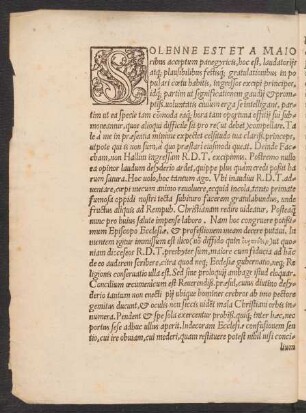 SOLENNE EST ET A MAIO
ribus acceptum panegyricis, hoc est, laudatorijs
atq; plausibilibus festisq; gratulationibus in po
pulari cœtu habitis, ingressus except principes,
idq; partim ut significationem gaudij & prom=
ptiss. uoluntatis ciuium erga se intelligant, par=
tim ut ea specie tam cómoda eaq; hora tam oportuna affliti su
moueantur, quæ alioqui difficile sit pro re sua debitè Ta
te à me in præsentia minime expecta celsitudo tua clariss. princeps,
utpote qui is non sum, à quo præstari eiusmodi queat. Deinde Fac
ebam, non Hallim ingressum R.D.T. excepimus. Postremo nullo
ea opinor laudum desyderio ardet, quippe plus quàm credi possit ha
rum satura. Hoc uolo, hoc tantum ago. Vbi inaudiui R.D.T. ad=
uentare, cœpi mecum animo reuoluere, ecquid incola, tenuis priuate
fumosq́ oppidi nostri tecta subituro facerem gratulabundus, unde
fructus aliquis ad Rempub. Christianam redire uideatur. Postea
nunc pro huius salute impense laboro. Nam hoc congruere potissi=
mum Episcopo Ecclesiæ & professionem meam decere putaui. In
mentem igitur immissum est diuos nõ diffido quin
niam diœceseos R.D.T. presbyter sum, maiore cum fiducia ad hanc
de eo audirem scribere, citra quod neq; Ecclesiæ gubernatio, neq; Re
ligionis conseruatio ulla est. Sed sine proloquij ambage istud eloquar.
Concilium œcumenicum est Reuerendiss. præsul, cuius diutino desy=
derio tantum non enecti pij ubique homines crebros ab imo pectore
gemitus ducunt, & oculis non siccis uident mala Christiani orbis in
numera. Pendent & spe sola exercentur probiss. quiq; inter hæc, nec
portus sese adhuc ullus aperit. Indecoram Ecclesiæ confusionem sen
tio, cui ire obuiam, cui mederi, quam restituere potest nihil nisi conci=
lium